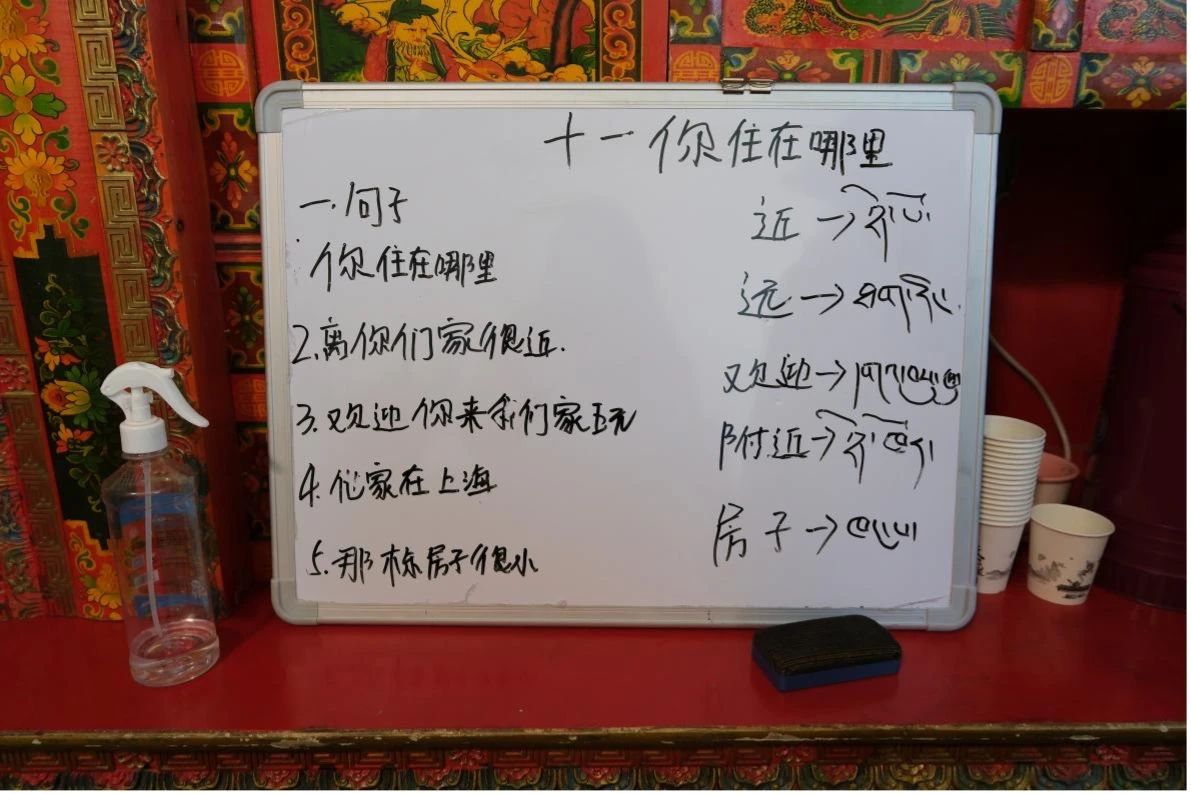 十一 你住在哪里
一.句子
你住在哪里
2.离你们家很近.
3.欢迎你来我们家玩
4.他家在上海
5.那栋房子很小
近→
远→ཐག་རིང་
欢迎→
附近→
房子→ཁང་པ